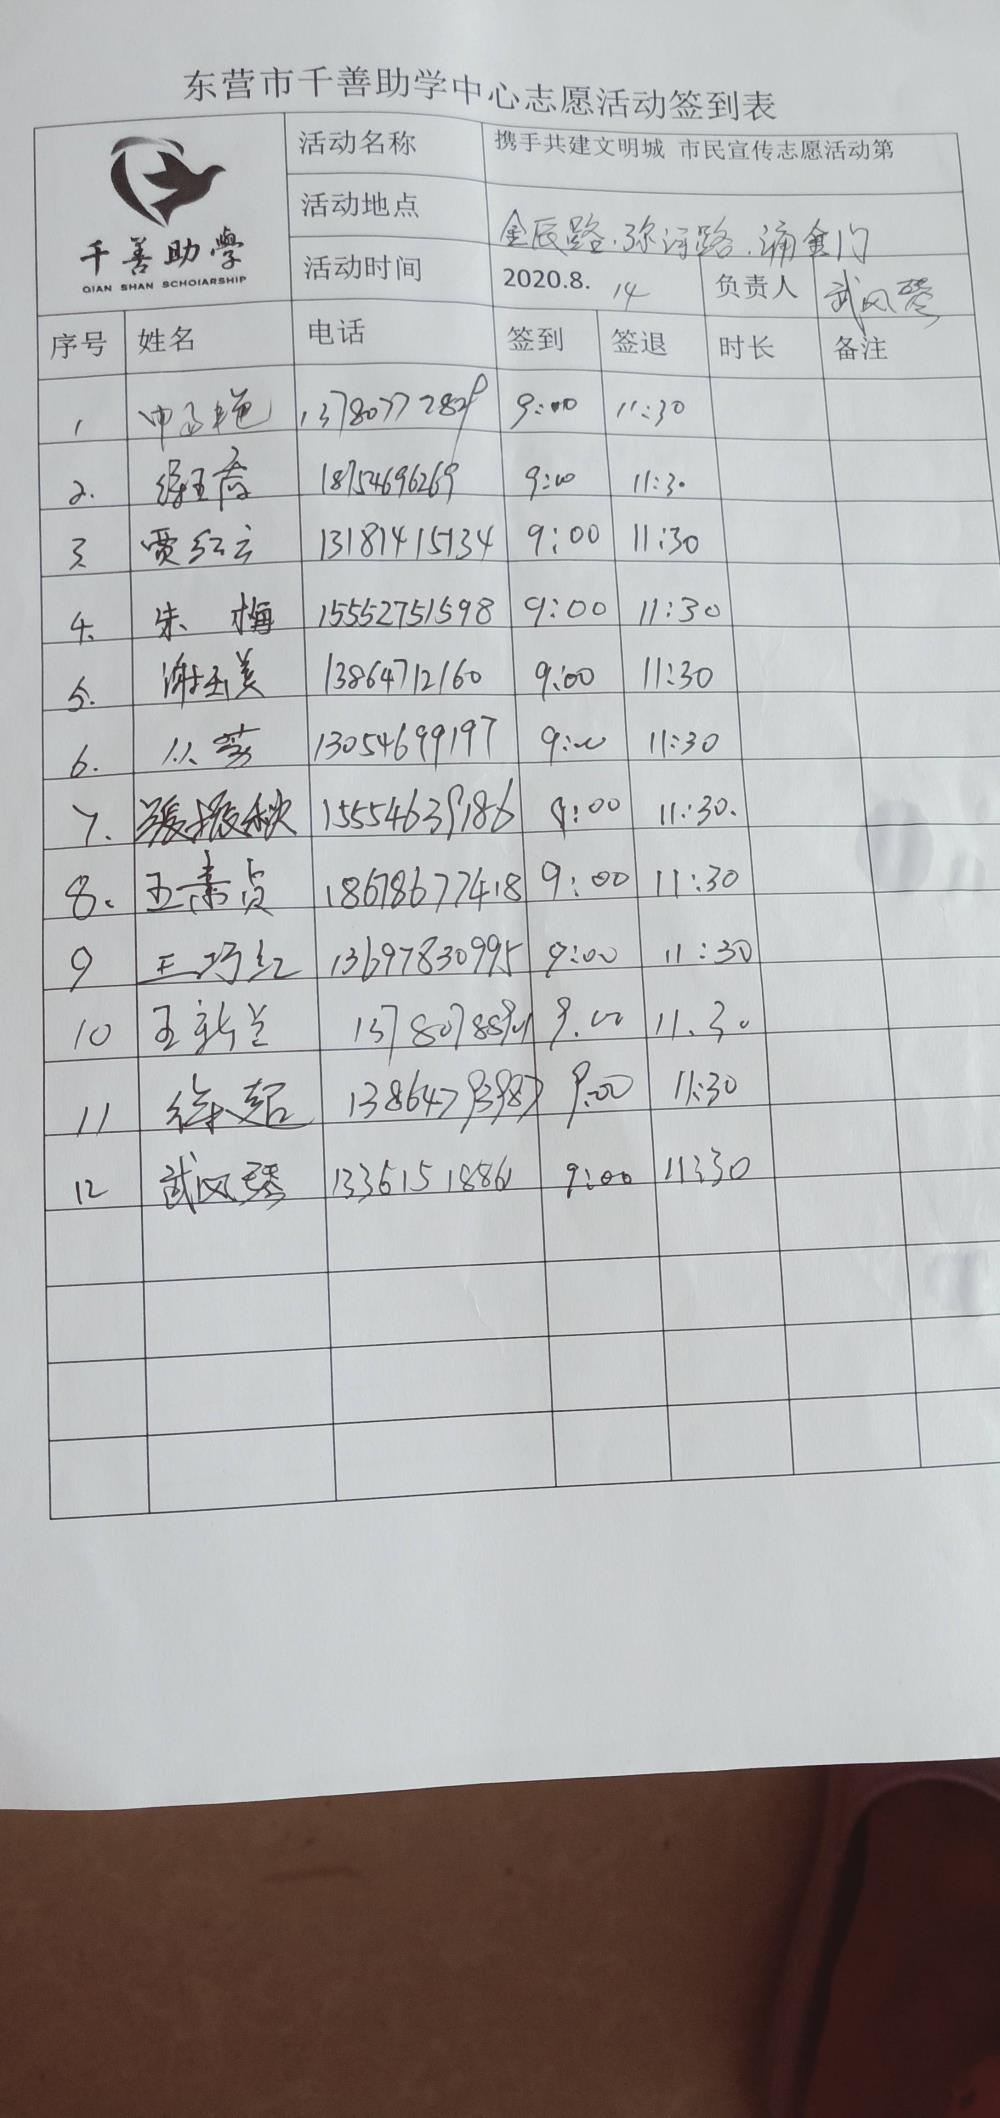 东营市千善助学中心志愿活动签到表
千善助學
QIAN SHAN SCHOLARSHIP
活动名称 携手共建文明城 市民宣传志愿活动第
活动地点 金辰路.弥河路.涌金门
活动时间 2020.8. 14 负责人 武风琴
序号 姓名 电话 签到 签退 时长 备注
1 9:00 11:30
2. 18754696269 9:00 11:30
3 贾红云 13181415134 9:00 11:30
4. 朱 梅 15552751598 9:00 11:30
5. 谢玉美 13864712160 9:00 11:30
6. 丛芳 13054699197 9:00 11:30
7. 張振秋 15554639186 9:00 11:30.
8. 王素贞 18678677418 9:00 11:30
9 王巧红 13697830995 9:00 11:30
10 王新兰 9.00 11.30
11 徐超 13864793987 9:00 11:30
12 武风琴 13361518861 9:00 11:30